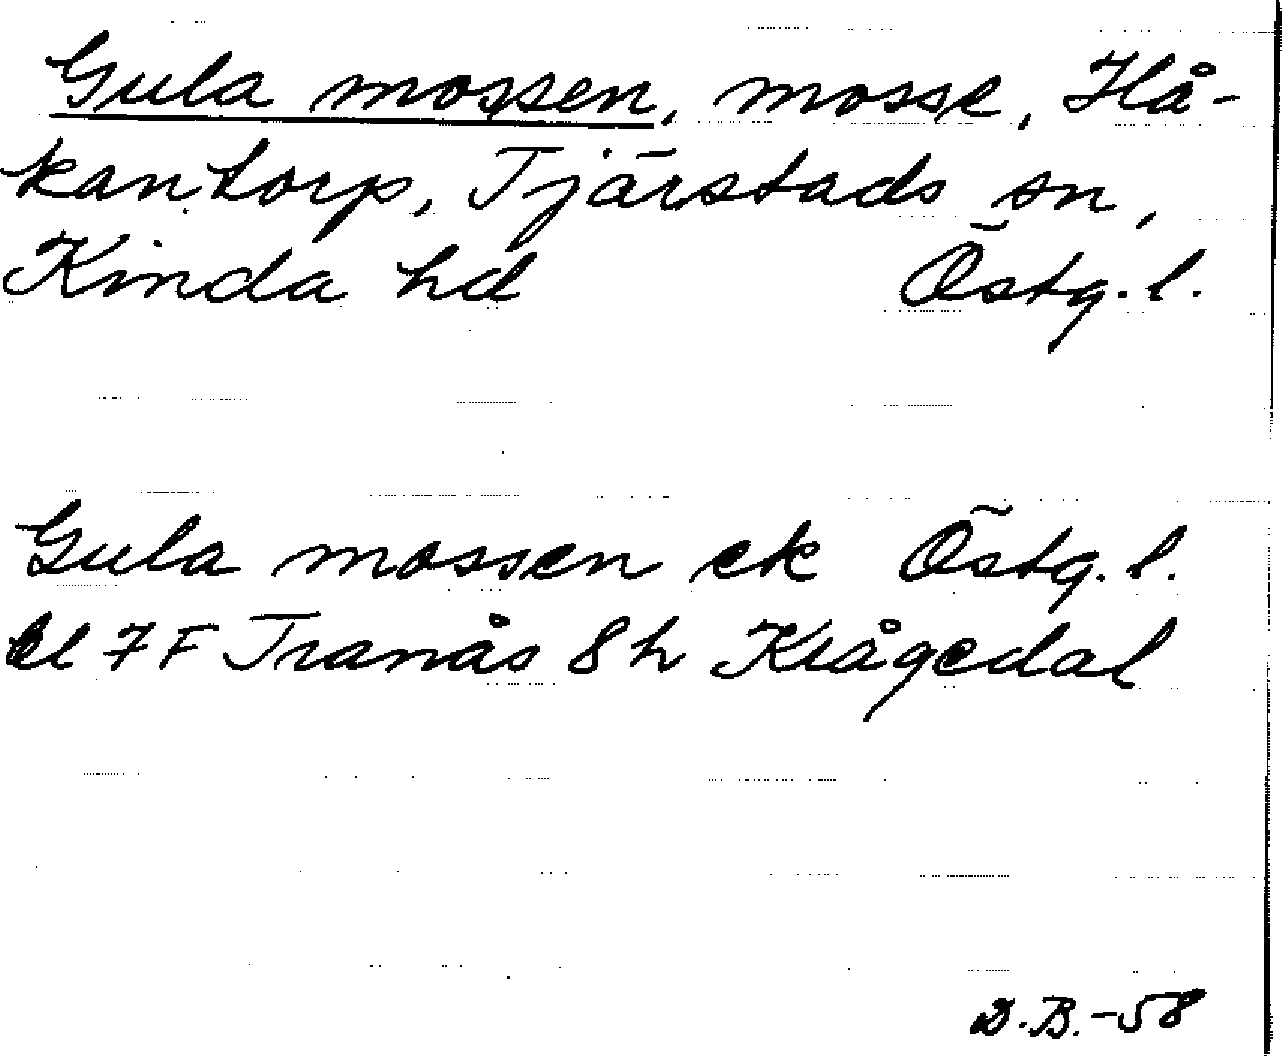 Gula mossen, mosse, Hå-
kantorp, Tjärstads sn,
Kinda hd Östg. l.
Gula mossen ek Östg. l.
bl 7 F Tranås 8 h Krågedal
D.B.-58